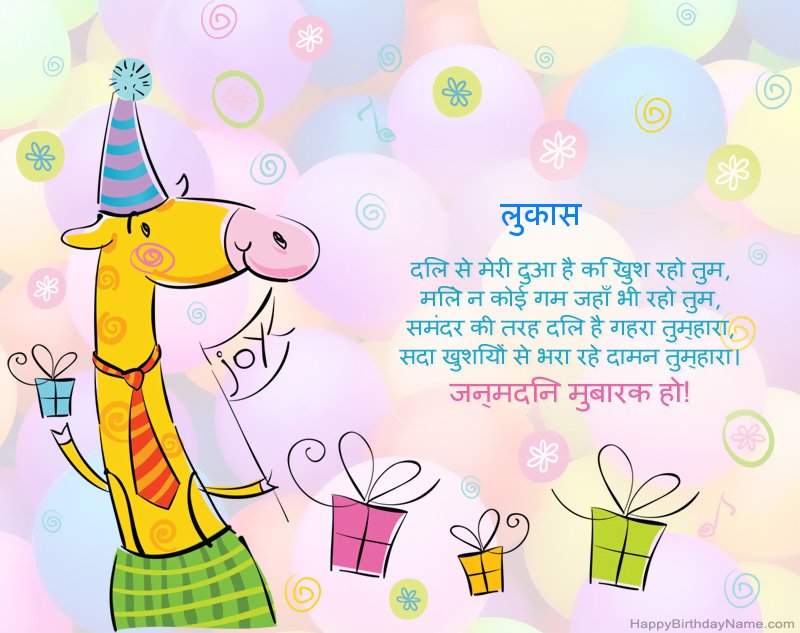 लुकास
दलि से मेरी दुआ है कि खुश रहो तुम,
मलिे न कोई गम जहाँ भी रहो तुम,
समंदर की तरह दलि है गहरा तुम्हारा,
सदा खुशयिों से भरा रहे दामन तुम्हारा।
जन्मदनि मुबारक हो!
joy
HappyBirthdayName.com